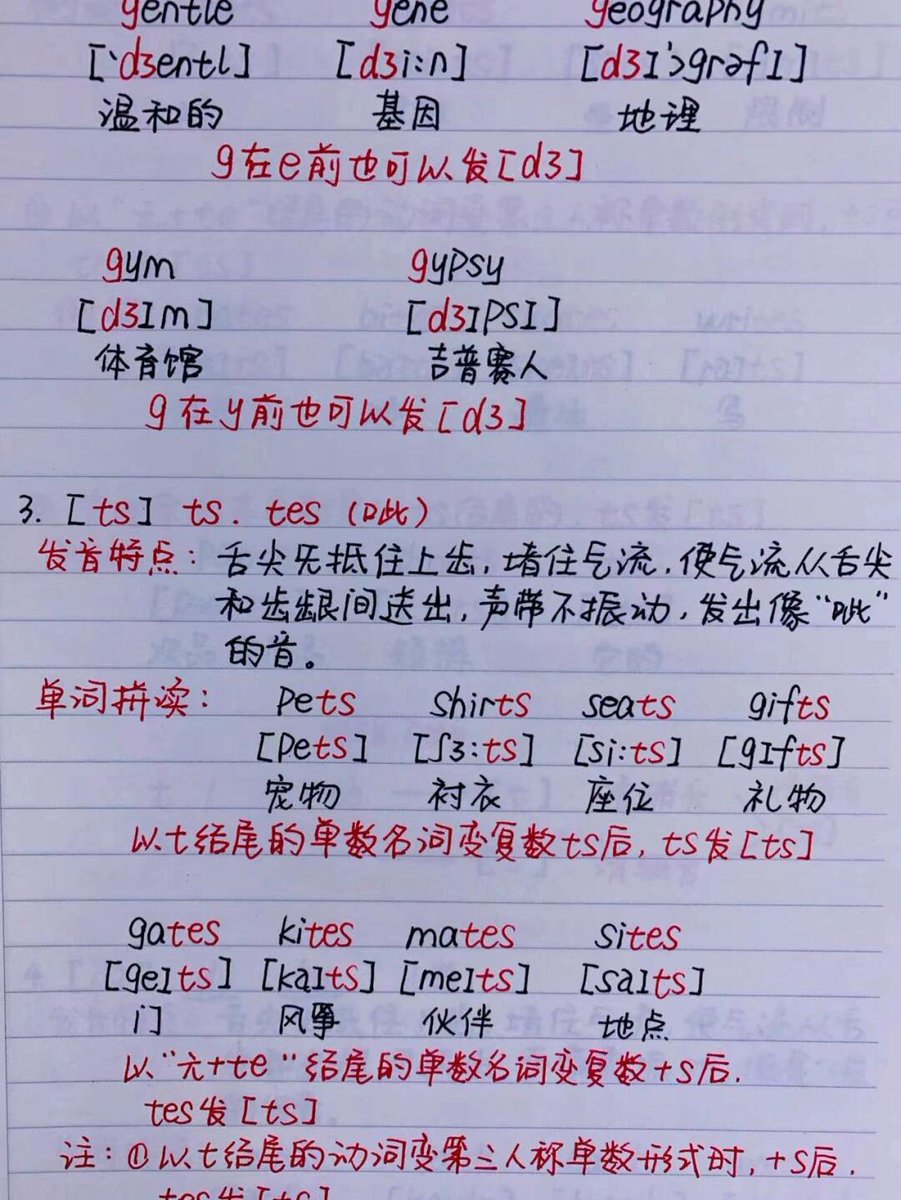 gentle gene geography
['dʒentl] [dʒi:n] [dʒɪ'ɔgrəfɪ]
温和的 基因 地理
g在e前也可以发[dʒ]
gym gypsy
[dʒɪm] [dʒɪpsɪ]
体育馆 吉普赛人
g在y前也可以发[dʒ]
3. [ts] ts. tes (呲)
发音特点: 舌尖先抵住上齿, 堵住气流, 使气流从舌尖
和齿龈间送出, 声带不振动, 发出像“呲”
的音。
单词拼读: pets shirts seats gifts
[pets] [ʃɜ:ts] [si:ts] [gɪfts]
宠物 衬衣 座位 礼物
以t结尾的单数名词变复数ts后, ts发[ts]
gates kites mates sites
[geɪts] [kaɪts] [meɪts] [saɪts]
门 风筝 伙伴 地点
以“元+te”结尾的单数名词变复数+s后.
tes发[ts].
注: ①以t结尾的动词变第三人称单数形式时, +s后.
tes发[ts]